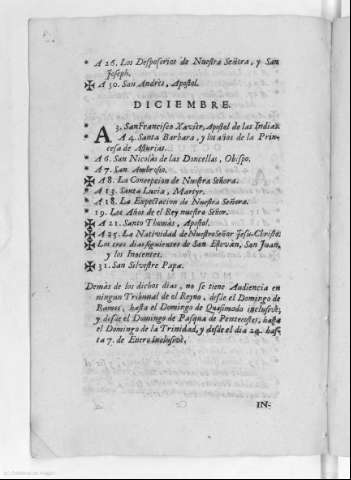 * A 26. Los Desposorios de Nuestra Señora, y San
Joseph.
✠ A 30. San Andrès, Apostol.
DICIEMBRE.
* A 3. San Francisco Xavier, Apostol de las Indias.
* A 4. Santa Barbara, y los años de la Prin-
cesa de Asturias.
* A 6. San Nicolàs de las Doncellas, Obispo.
* A 7. San Ambrosio.
✠ A 8. La Concepcion de Nuestra Señora.
* A 13. Santa Lucia, Martyr.
* A 18. La Expectacion de Nuestra Señora.
* 19. Los Años de el Rey nuestro Señor.
✠ A 21. Santo Thomàs, Apostol.
✠ A 25. La Natividad de Nuestro Señor Jesu-Christo.
✠ Los tres dias siguientes de San Estevan, San Juan,
y los Inocentes.
✠ 31. San Silvestre Papa.
Demàs de los dichos dias, no se tiene Audiencia en
ningun Tribunal de el Reyno, desde el Domingo de
Ramos, hasta el Domingo de Quasimodo inclusivè;
y desde el Domingo de Pasqua de Pentecostes, hasta
el Domingo de la Trinidad, y desde el dia 24. has-
ta 7. de Enero inclusivè.
IN-